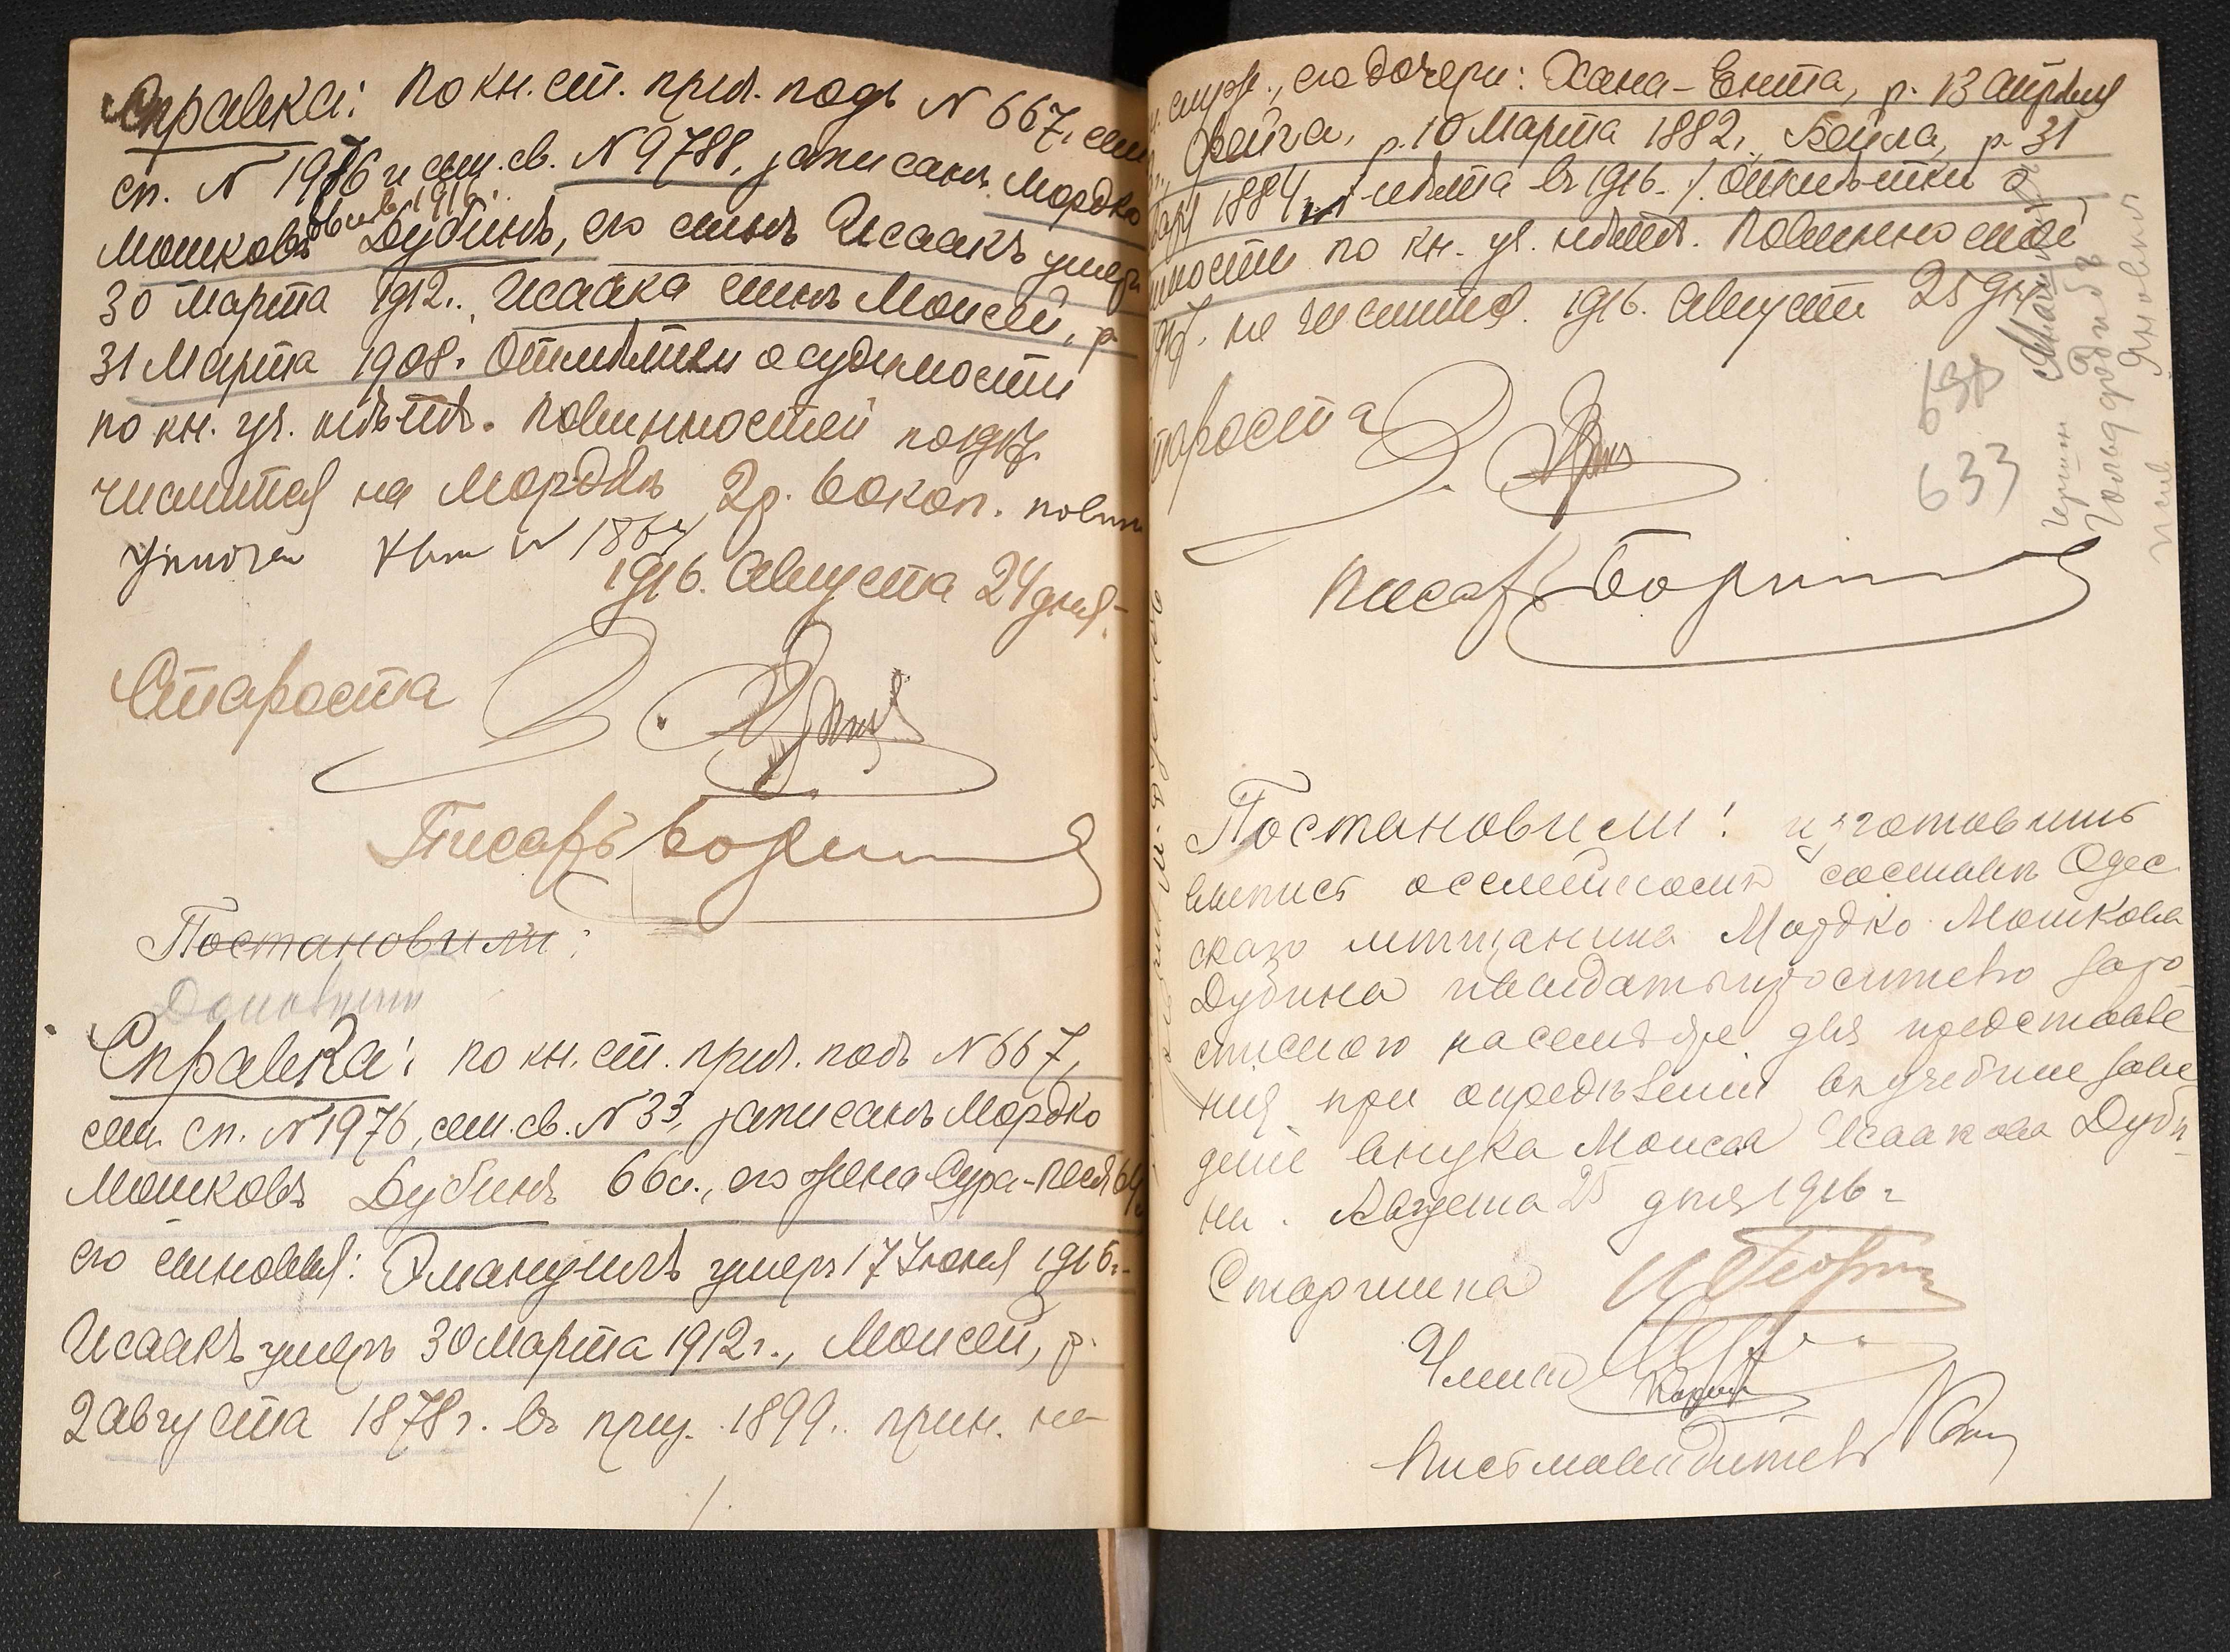 Справка: по кн. ст. прил. подъ N 667, сем.
сп. N 1976 и сем. св. N 9788, записанъ Мордко
явив. 1916.
Мошковъ Дубинъ, его сынъ Исаакъ умеръ
30 Марта 1912 г., Исаака сынъ Моисей, р.
31 Марта 1908 г. Отмѣтки о судимости
по кн. уч. нѣтъ. Повинностей по 1917 г.
числится на Мордкѣ 2 р. 60 коп. повин
N 1864
1916 г. Августа 24 дня.
Староста
Писарь
Постановили:
Справка: по кн. ст. прил. подъ N 667,
сем. сп. N 1976, сем. св. N 33, записанъ Мордко
Мошковъ Дубинъ 66 л., его жена Сура-Песя 64
его сыновья: Эмануилъ умеръ 17 Июня 1915 г.
Исаакъ умеръ 30 Марта 1912 г., Моисей, р.
2 Августа 1878 г. въ приз. 1899 г. прин. на
служ., его дочери: Хана-Ента, р. 13 Апрѣля
Фейга, р. 10 Марта 1882 г., Бейла, р. 31
1884 г. лѣта въ 1916 г. Отмѣтки о
имости по кн. уч. нѣтъ. Повинностей
не числится. 1916 г. Августа 25 дня
638
633
тароста
Писарь
Постановили: изготовить
выпись о семейномъ составѣ Одес
скаго мѣщанина Мордко Мошкова
Дубина и выдать просителю
для представле
нія при опредѣленіи въ учебные заве
деніе внука Моисея Исаакова Дуби
на. Августа 25 дня 1916 г.
Старшина
Члены
Письмоводитель